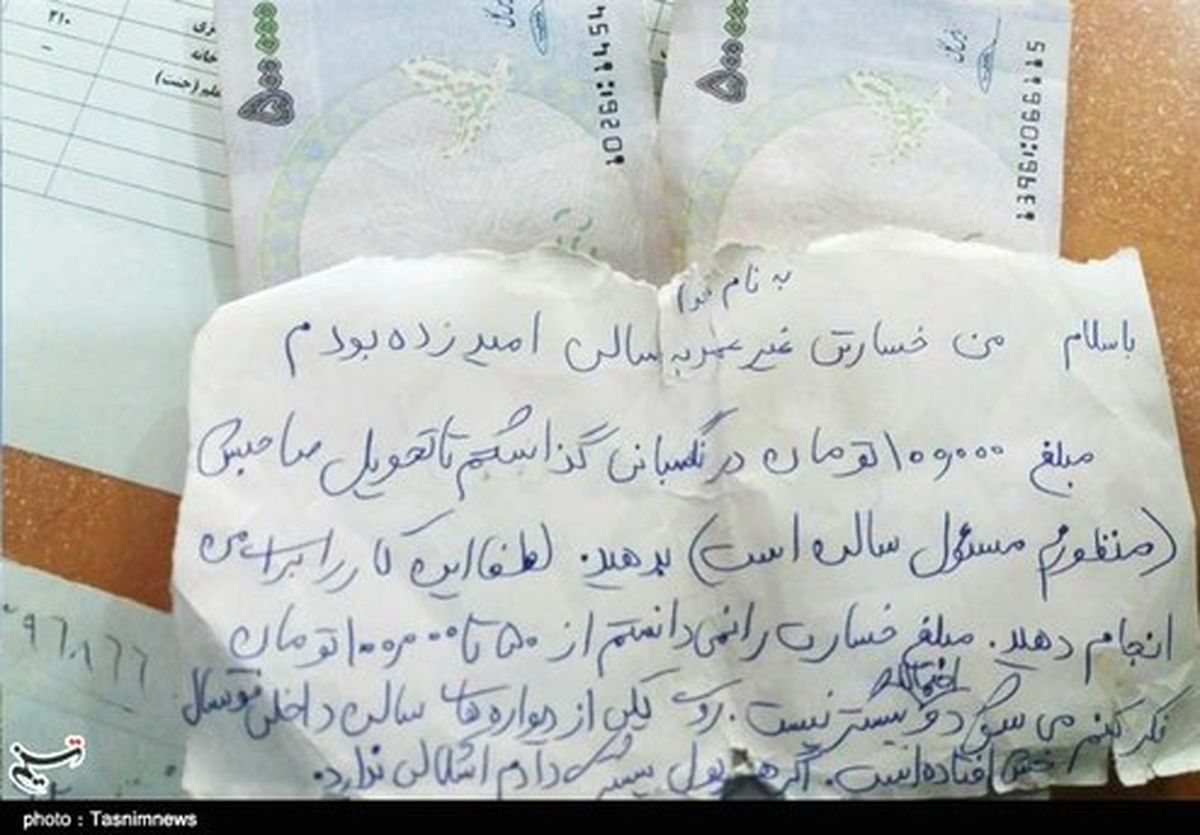 ۲۱۰
خانه
۵۰۰۰۰۰
۵۰۰۰۰۰
به نام خدا
باسلام من خسارتی غیر عمد به سالن امید زده بودم
مبلغ ۱۰۰،۰۰۰ تومان در نگهبانی گذاشتم تا تحویل صاحبش
(منظورم مسئول سالن است) بدهید. لطفا این کار را برای من
انجام دهید. مبلغ خسارت را نمی دانستم از ۵۰ تا ۱۰۰،۰۰۰ تومان
احتمالا
فکر کنم می شود و بیشتر نیست. روی یکی از دیواره های سالن داخلی فوتسال
خش افتاده است. اگر هم پول بیشتری دادم اشکالی ندارد.
تسنیم
photo : Tasnimnews